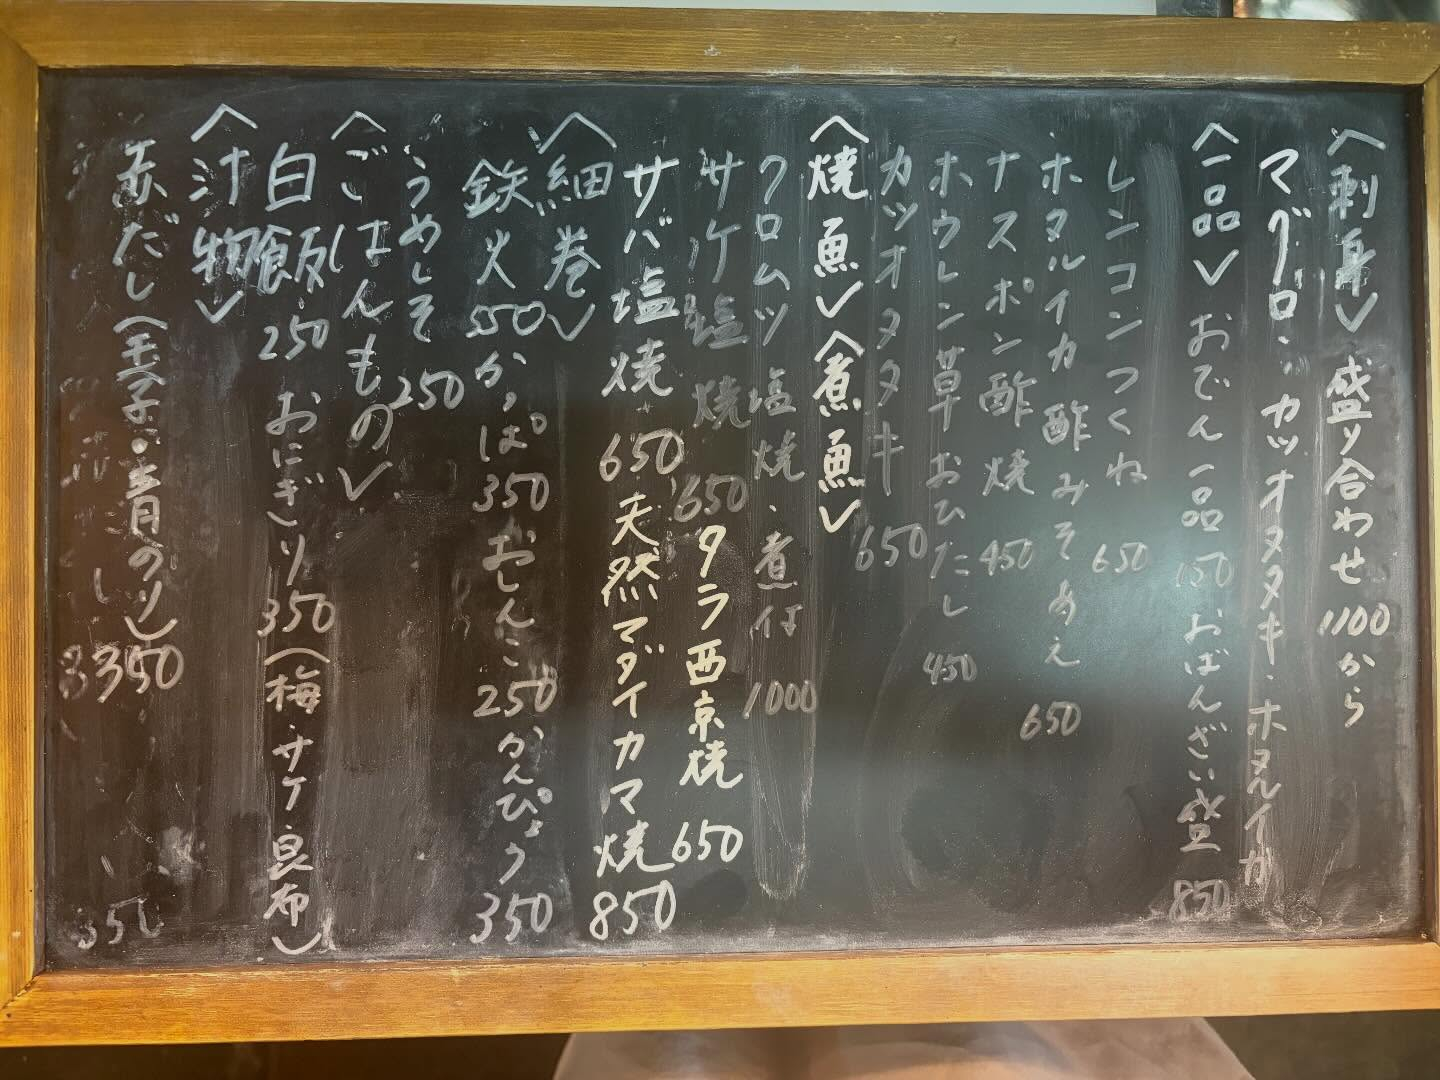 〈刺身〉 盛り合わせ 1100から
マグロ・カツオタタキ・ホタルイカ
〈一品〉 おでん一品 150 おばんざい盛 850
レンコンつくね 650
ホタルイカ酢みそあえ 650
ナスポン酢焼 450
ホウレン草おひたし 450
カツオタタキ 650
〈焼魚〉〈煮魚〉
クロムツ塩焼・煮付 1000
サケ塩焼 650 タラ西京焼 650
サバ塩焼 650 天然マダイカマ焼 850
〈細巻〉
鉄火 550 かっぱ 350 おしんこ 250 かんぴょう 350
うめしそ 250
〈ごはんもの〉
白飯 250 おにぎり 350 (梅・サケ・昆布)
〈汁物〉
赤だし(玉子・青のり) 350
350